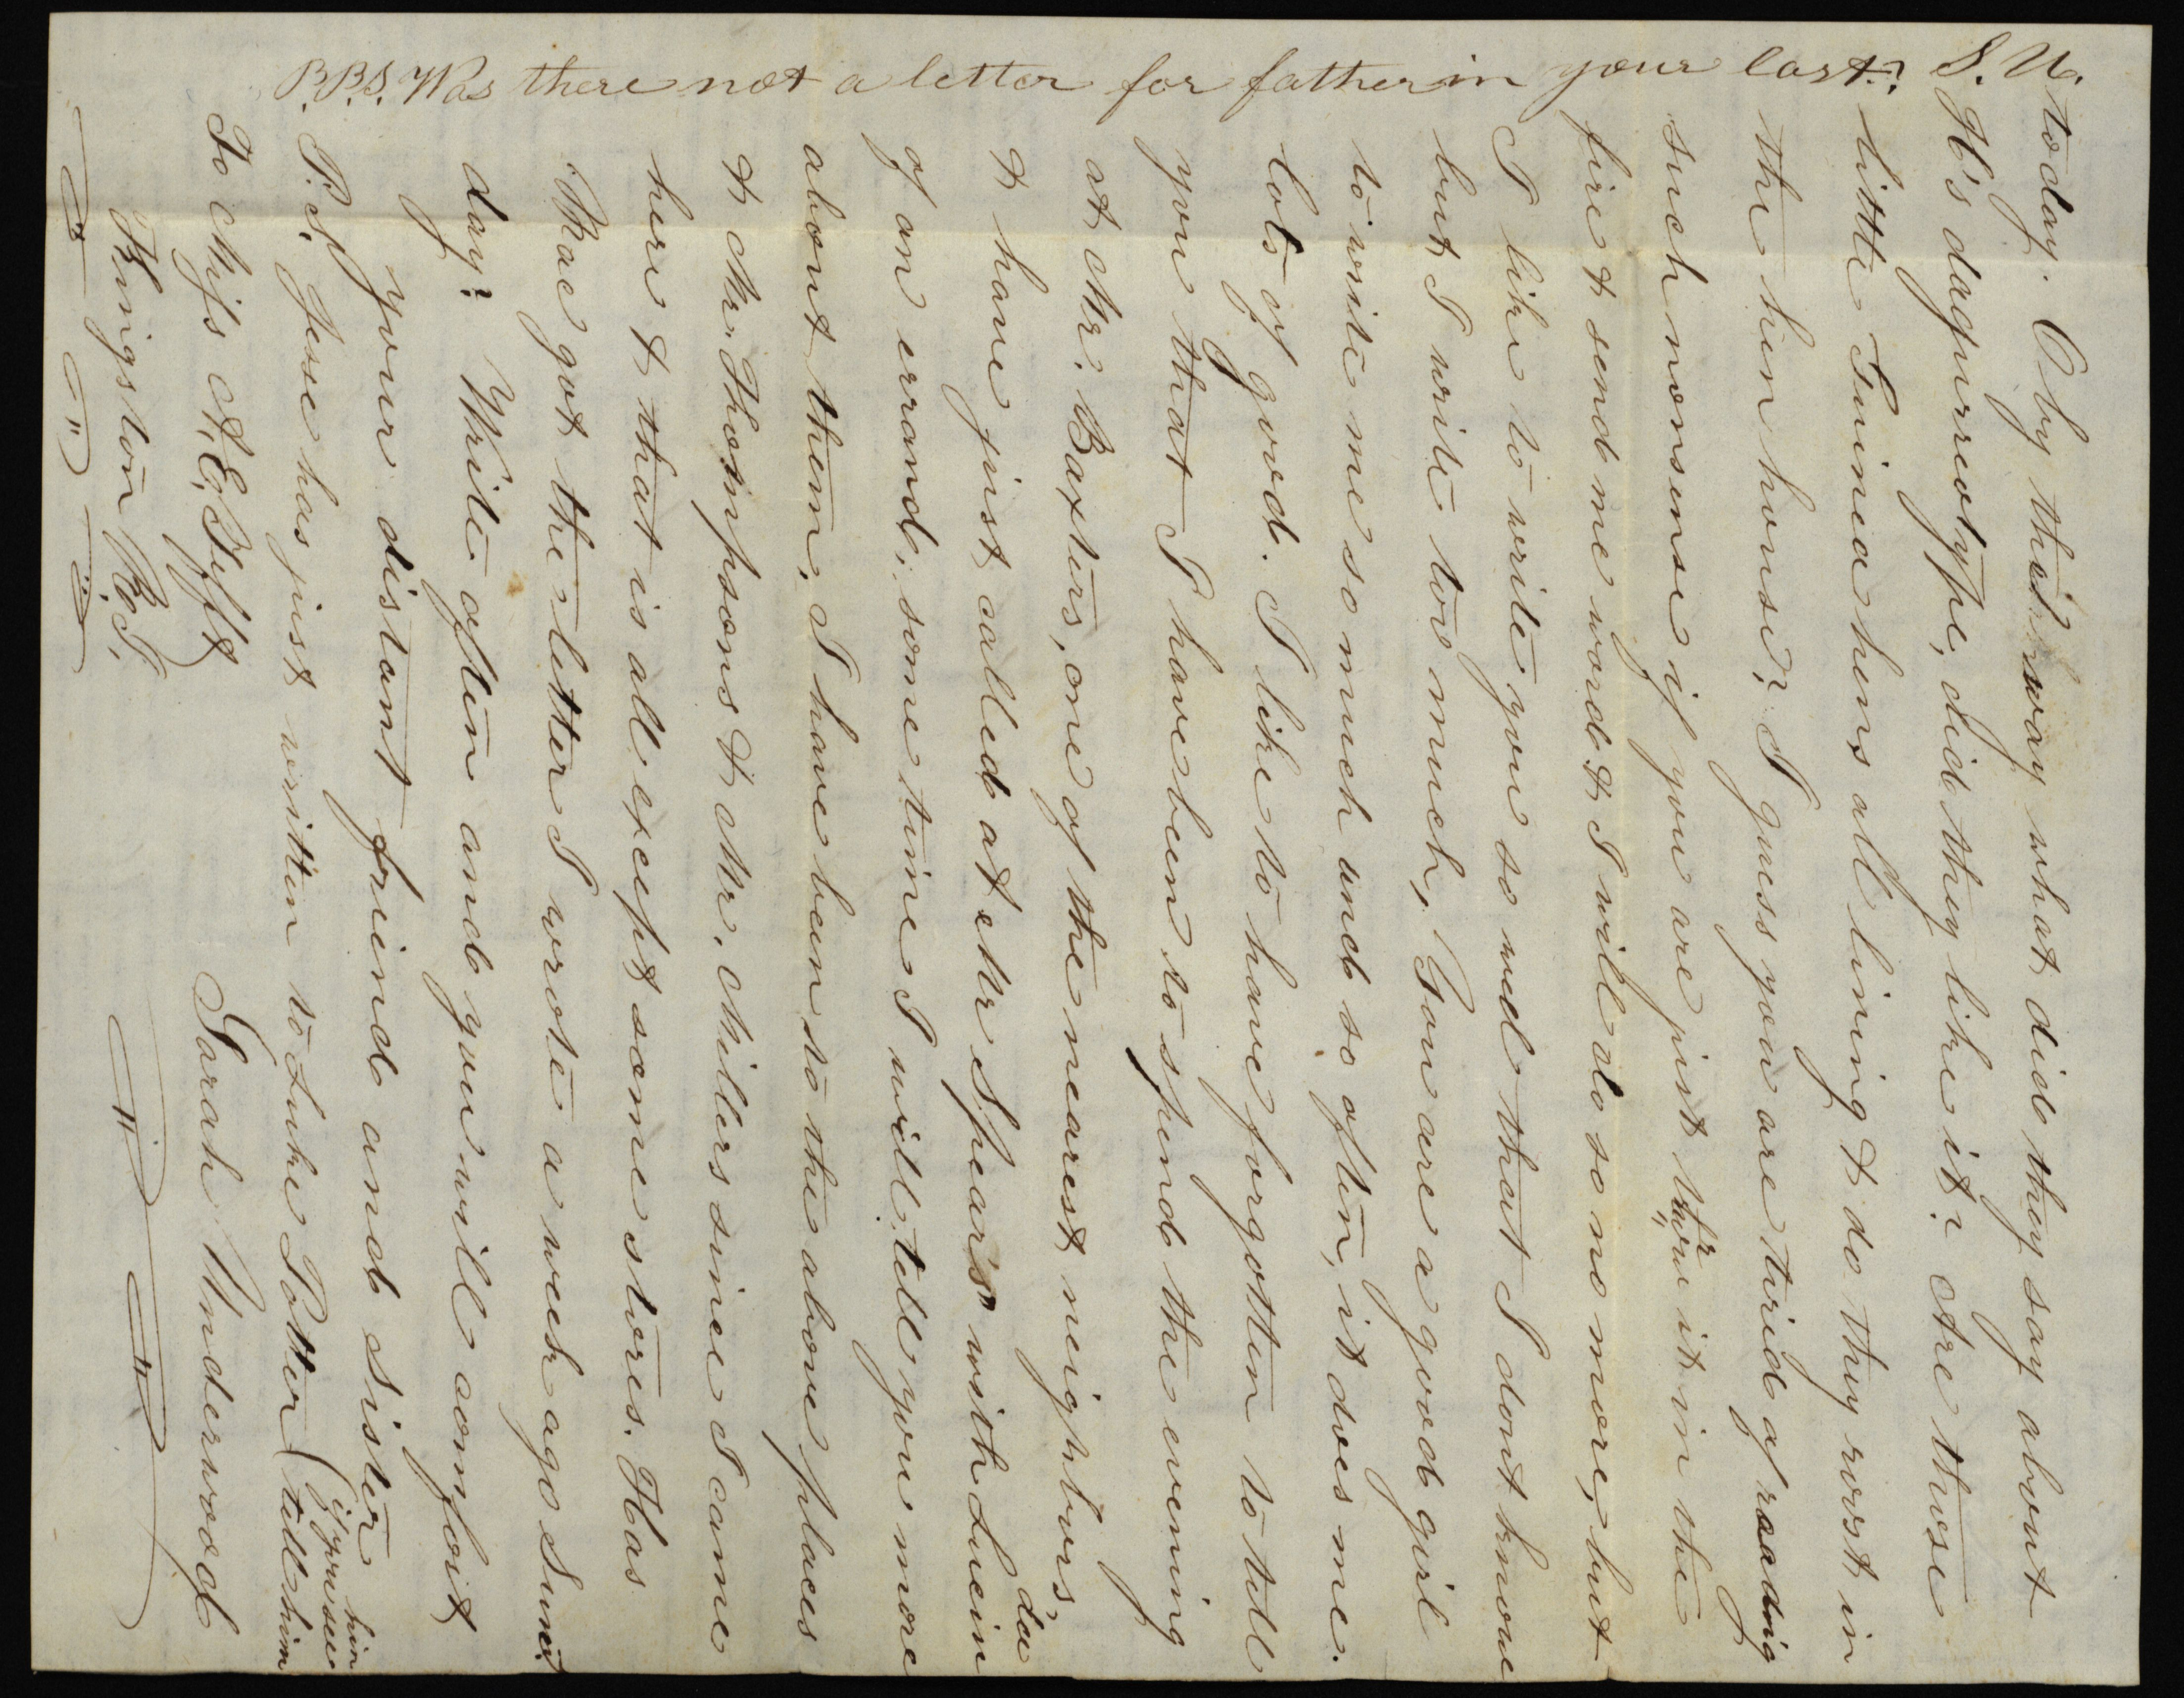 today. O by the way what did they say about
H's daguireotype, did they like it? Are those
little Guinea hens all living & do they roost in
the hen house? I guess you are tired of reading
such nonsense if you are just throw it in the
fire & send me word & I will do so no more, but
I like to write you so well that I dont know
but I write too much, You are a good girl
to write me so much and so often, it does me
lots of good. I like to have forgotten to tell
you that I have been to spend the evening
at Mr. Baxters, one of the nearest neighbors,
& have just called at Mr Spear's with Lucin
da
of an errand; some time I will tell you more
about them, I have been to the above places
& Mr. Thompsons & Mr. Millers since I came
here & that is all except some stores. Has
Rac got the letter I wrote a week ago Sun
day? Write often and you will comfort
your distant friend and sister
P.S. Jesse has just written to Luke Potter (tell him
if you see
him
To Miss A. E. Tefft
Sarah Underwood
Kingston R. I.
P.P.S. Was there not a letter for father in your last? S. U.